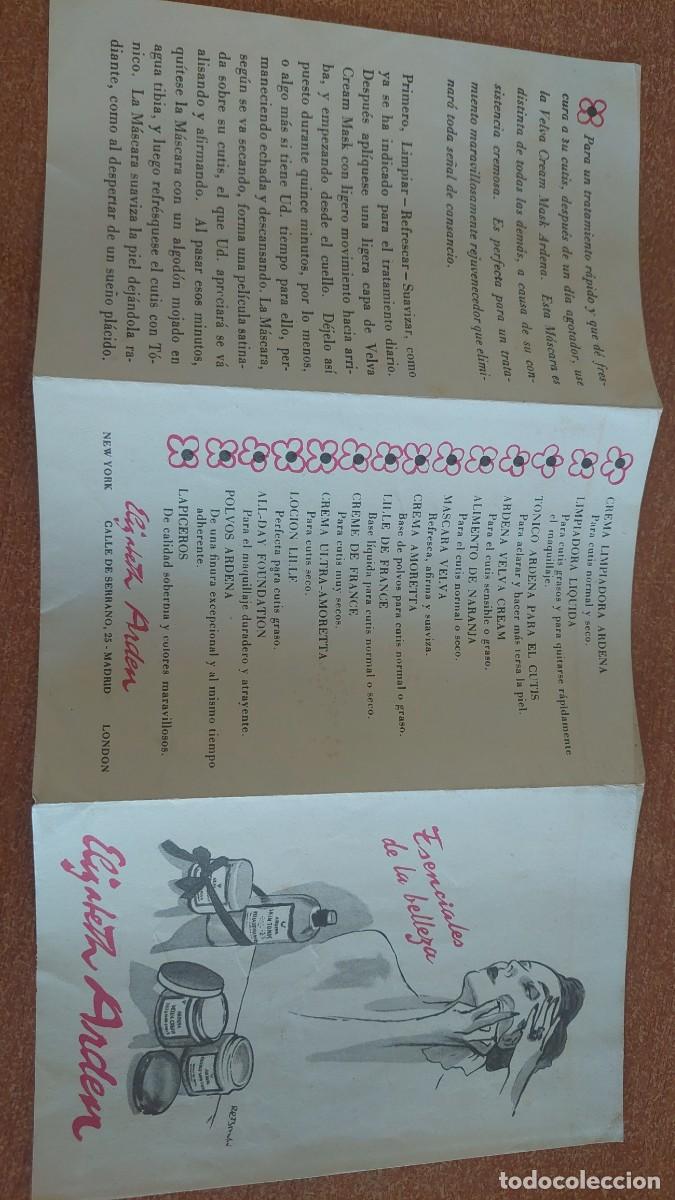 Para un tratamiento rápido y que dé fres-
cura a su cutis, después de un día agotador, use
la Velva Cream Mask Ardena. Esta Máscara es
distinta de todas las demás, a causa de su con-
sistencia cremosa. Es perfecta para un trata-
miento maravillosamente rejuvenecedor que elimi-
nará toda señal de cansancio.
Primero, Limpiar—Refrescar—Suavizar, como
ya se ha indicado para el tratamiento diario.
Después aplíquese una ligera capa de Velva
Cream Mask con ligero movimiento hacia arri-
ba, y empezando desde el cuello. Déjelo así
puesto durante quince minutos, por lo menos,
o algo más si tiene Ud. tiempo para ello, per-
maneciendo echada y descansando. La Máscara,
según se va secando, forma una película satina-
da sobre su cutis, el que Ud. apreciará se vá
alisando y afirmando. Al pasar esos minutos,
quítese la Máscara con un algodón mojado en
agua tibia, y luego refrésquese el cutis con Tó-
nico. La Máscara suaviza la piel dejándola ra-
diante, como al despertar de un sueño plácido.
CREMA LIMPIADORA ARDENA
Para cutis normal y seco.
LIMPIADORA LIQUIDA
Para cutis grasos y para quitarse rápidamente
el maquillaje.
TONICO ARDENA PARA EL CUTIS
Para aclarar y hacer más tersa la piel.
ARDENA VELVA CREAM
Para el cutis sensible o graso.
ALIMENTO DE NARANJA
Para el cutis normal o seco.
MASCARA VELVA
Refresca, afirma y suaviza.
CREMA AMORETTA
Base de polvos para cutis normal o graso.
LILLE DE FRANCE
Base líquida para cutis normal o seco.
CREME DE FRANCE
Para cutis muy secos.
CREMA ULTRA-AMORETTA
Para cutis seco.
LOCION LILLE
Perfecta para cutis graso.
ALL-DAY FOUNDATION
Para el maquillaje duradero y atrayente.
POLVOS ARDENA
De una finura excepcional y al mismo tiempo
adherente.
LAPICEROS
De calidad soberbia y colores maravillosos.
Elizabeth Arden
NEW YORK CALLE DE SERRANO, 25 - MADRID LONDON
Esenciales
de la belleza
ARDENA
SKIN TONIC
ARDENA
VELVA CREAM
Elizabeth Arden
todocoleccion